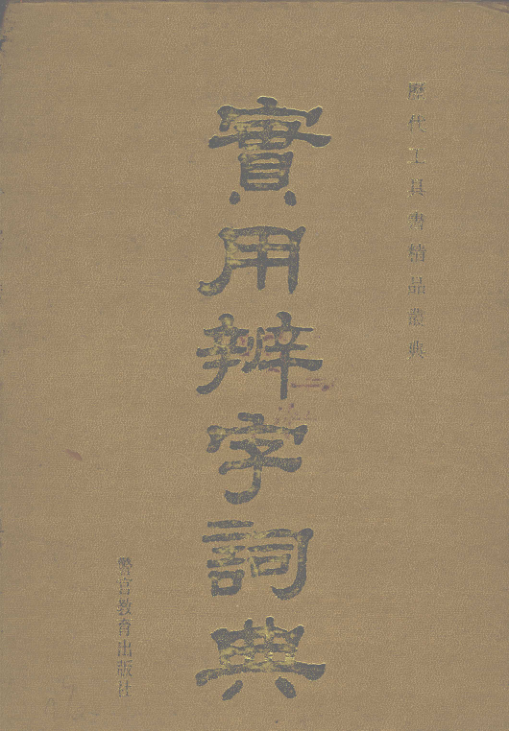 歷代工具書精品叢典
實用辨字詞典
警官教育出版社